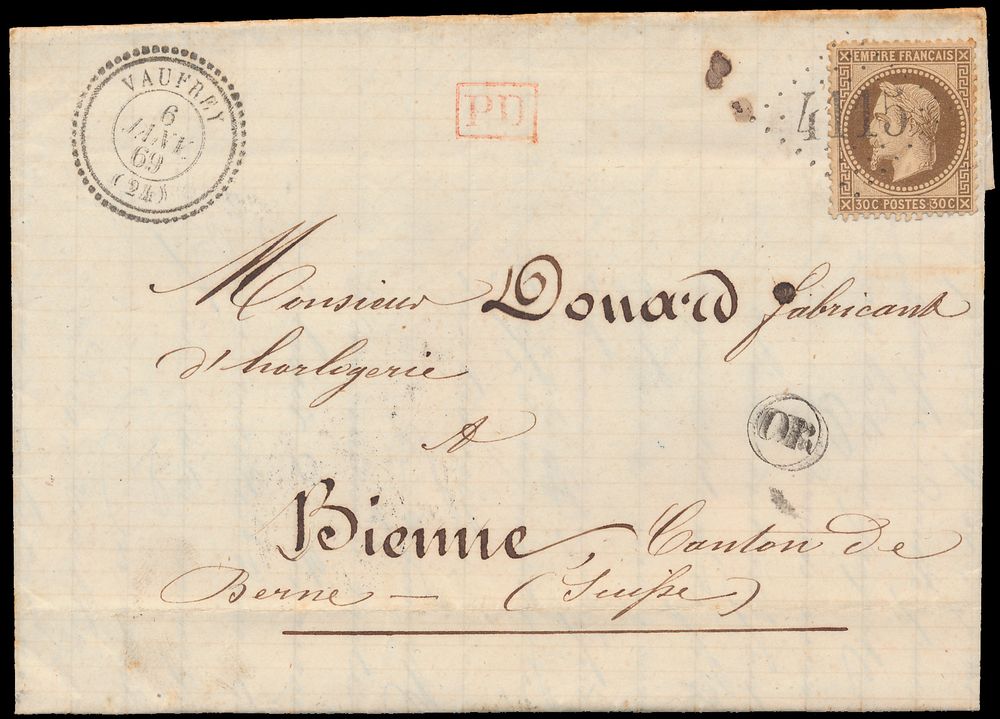 VAUFREY
6
JANV.
69
(24)
PD
4115
EMPIRE FRANÇAIS
30C POSTES 30C
Monsieur Douard fabricant
d'horlogerie
A
OR
Bienne, Canton de
Berne — (Suisse)